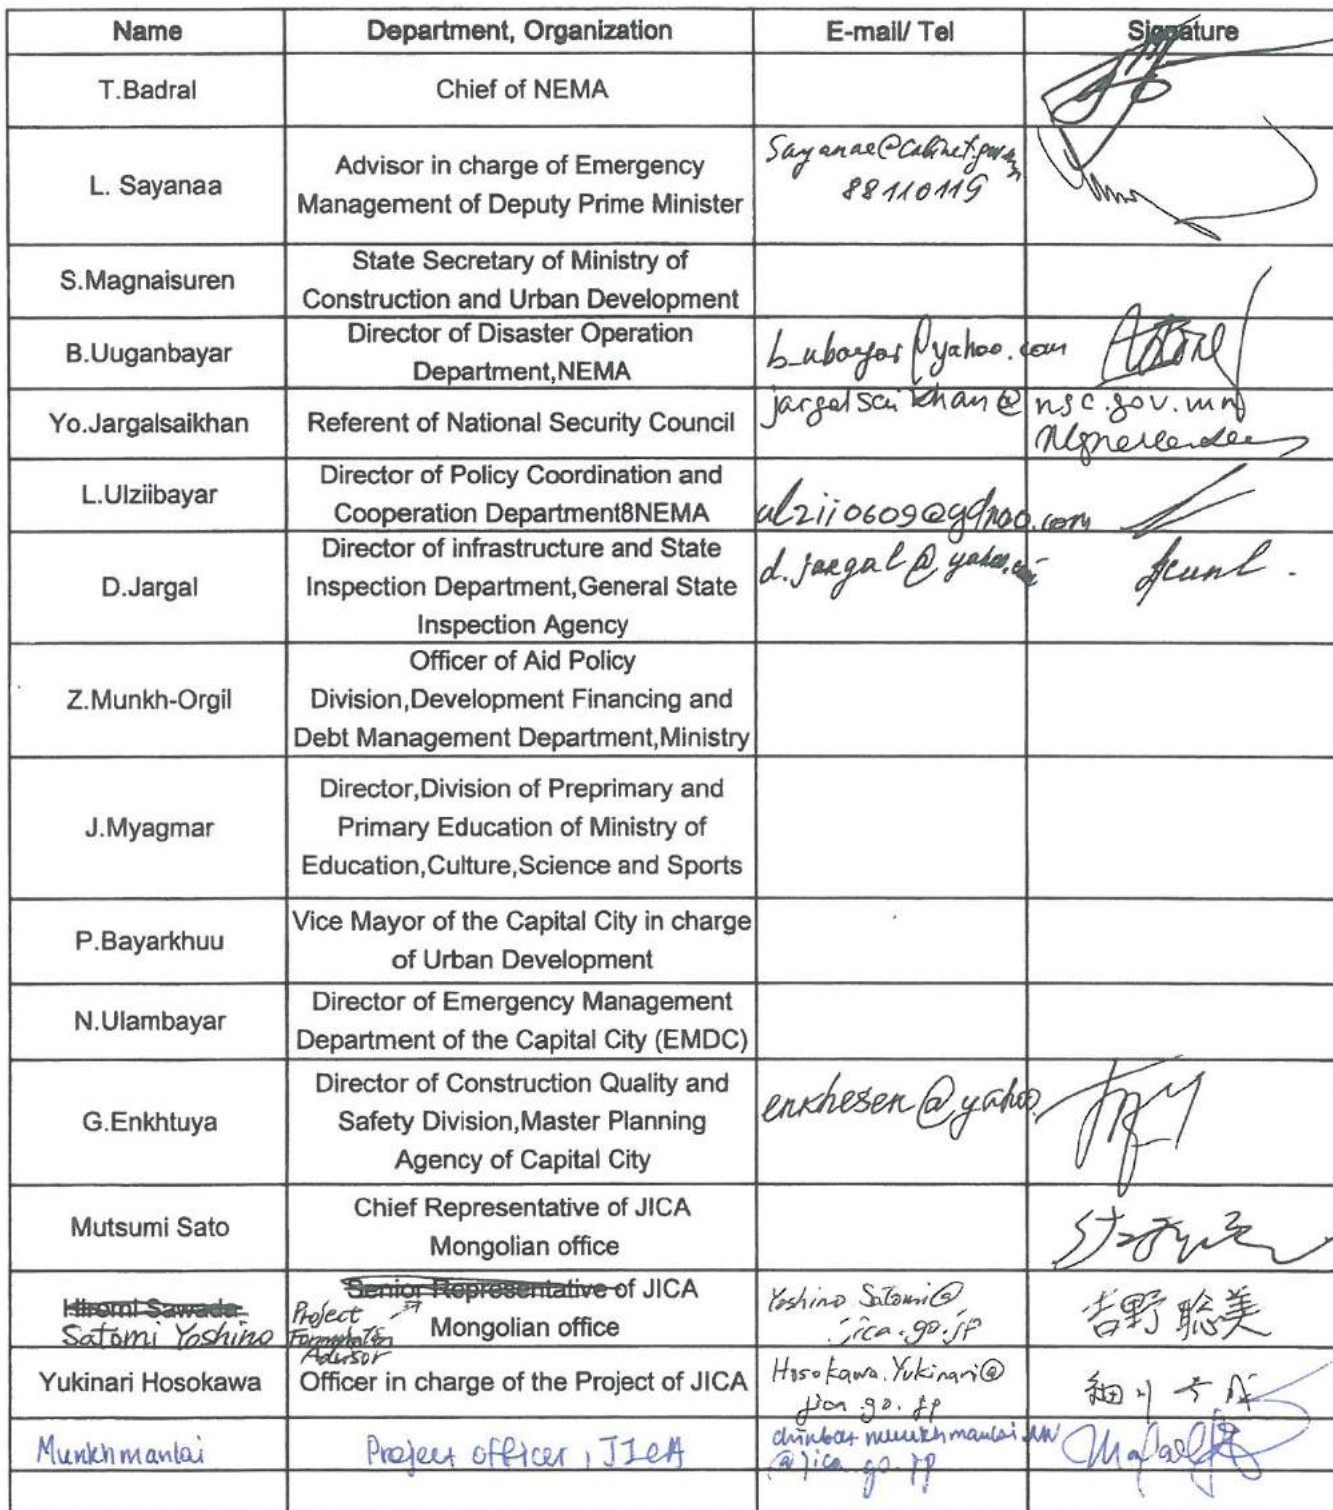 Name Department, Organization E-mail/ Tel Signature
T.Badral Chief of NEMA
L. Sayanaa Advisor in charge of Emergency
Management of Deputy Prime Minister
88110119
S.Magnaisuren State Secretary of Ministry of
Construction and Urban Development
B.Uuganbayar Director of Disaster Operation
Department,NEMA
@yahoo.com
Yo.Jargalsaikhan Referent of National Security Council
jargalsaikhan@nsc.gov.mn
L.Ulziibayar Director of Policy Coordination and
Cooperation Department8NEMA
ulzii0609@yahoo.com
D.Jargal Director of infrastructure and State
Inspection Department,General State
Inspection Agency
d.jargal@yahoo.com
Z.Munkh-Orgil Officer of Aid Policy
Division,Development Financing and
Debt Management Department,Ministry
J.Myagmar Director,Division of Preprimary and
Primary Education of Ministry of
Education,Culture,Science and Sports
P.Bayarkhuu Vice Mayor of the Capital City in charge
of Urban Development
N.Ulambayar Director of Emergency Management
Department of the Capital City (EMDC)
G.Enkhtuya Director of Construction Quality and
Safety Division,Master Planning
Agency of Capital City
enkhesen@yahoo.
Mutsumi Sato Chief Representative of JICA
Mongolian office
Hiromi Sawada Senior Representative of JICA
Satomi Yoshino Project Formulation Advisor Mongolian office
Yoshino.Satomi@
jica.go.jp
吉野聡美
Yukinari Hosokawa Officer in charge of the Project of JICA
Hosokawa.Yukinari@
jica.go.jp
細川
Munkhmanlai Project officer, JICA
@jica.go.jp